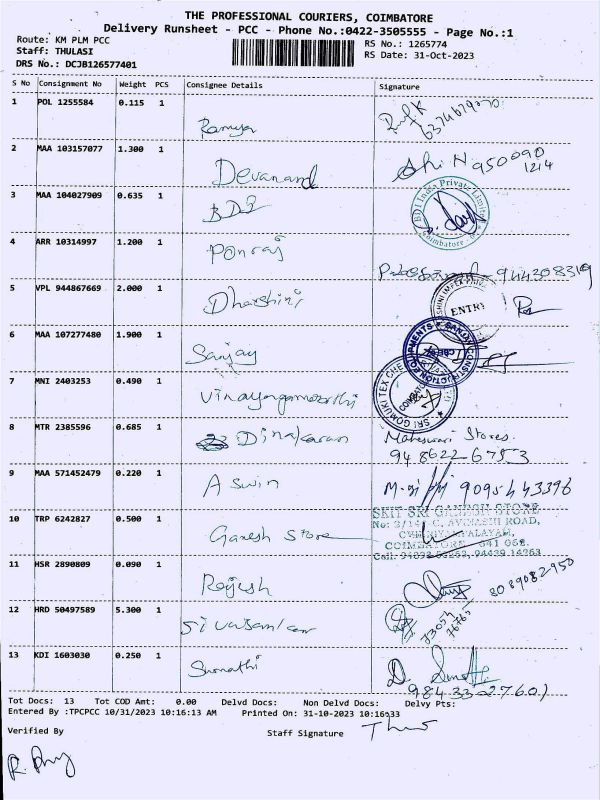 THE PROFESSIONAL COURIERS, COIMBATORE
Delivery Runsheet - PCC - Phone No.:0422-3505555 - Page No.:1
Route: KM PLM PCC
Staff: THULASI
DRS No.: DCJB126577401
RS No.: 1265774
RS Date: 31-Oct-2023
S No Consignment No Weight PCS Consignee Details Signature
1 POL 1255584 0.115 1 Ramya
2 MAA 103157077 1.300 1 Devanand
950090
1214
3 MAA 104027909 0.635 1 BDI
BDI India Private Limited
Coimbatore
4 ARR 10314997 1.200 1 Ponraj
9444308319
5 VPL 944867669 2.000 1 Dharshini
ENTRY
6 MAA 107277480 1.900 1 Sanjay
SANJAY CONSTRUCTION EQUIPMENTS
7 MNI 2403253 0.490 1 Vinayagamoorthi
SRI GOMUKI TEX CHE
8 MTR 2385596 0.685 1 Dinakaran
Maheswari Stores.
948622 6753
9 MAA 571452479 0.220 1 Aswin
9095443396
10 TRP 6242827 0.500 1 Ganesh Store
SRI GANESH STORE
AVINASHI ROAD,
COIMBATORE - 641 062.
11 HSR 2890809 0.090 1 Rajesh
8089082950
12 HRD 50497589 5.300 1 Sivasankar
73054
76765
13 KDI 1603030 0.250 1 Sumathi
Tot Docs: 13 Tot COD Amt: 0.00 Delvd Docs: Non Delvd Docs: Delvy Pts:
Entered By :TPCPCC 10/31/2023 10:16:13 AM Printed On: 31-10-2023 10:16:33
Verified By Staff Signature